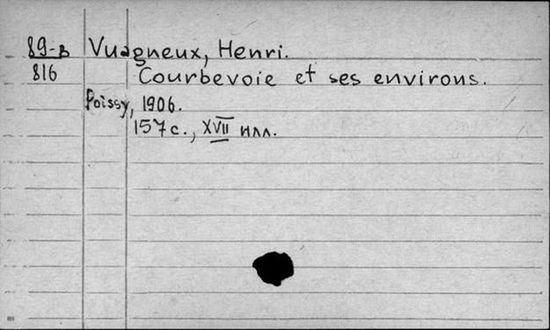 89-в Vuagneux, Henri.
816 Courbevoie et ses environs.
Poissy, 1906.
157 с., XVII илл.